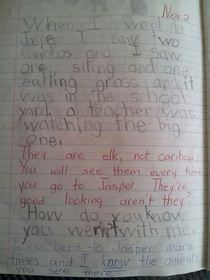 Nov 2
When I went to
Jaspe I saw two
Caribos and I saw
one siting and one
eatting grass and it
was in the school
yard. a teacher was
watching the big
one.
They are elk, not caribou.
You will see them every time
you go to Jasper. They're
good looking aren't they?
How do you know
you wernt with me.
been to Jasper many
times and I know the animals
you see there.